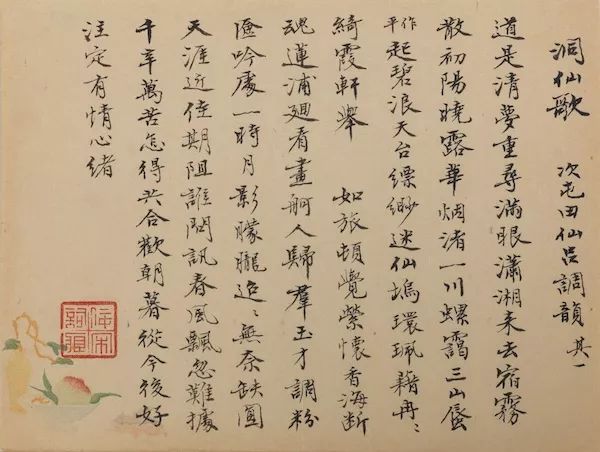 洞仙歌 次屯田仙呂調韻 其一
道是清夢重尋滿眼瀟湘来去宿霧
散初陽曉露華烟渚一川螺靄三山蜃
作平起碧浪天台縹緲迷仙塢環珮藉再〻
綺霞軒舉 如旅頓覺縈懷香海斷
魂蓮浦迴看畫舸人歸羣玉才調粉
奩吟處一時月影朦朧迢〻無奈缺圓
天涯近佳期阻誰問訊春風飄忽難據
千辛萬苦怎得共合歡朝暮從今後好
注定有情心緒